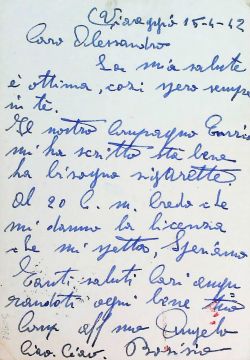 Viareggio 15-4-42
Caro Alessandro
La mia salute
è ottima, così spero sempre
in te.
Il nostro Compagno Enrico
mi ha scritto sta bene
ha bisogno sigarette.
Al 20 C. m. credo che
mi danno la licenza
che mi spetta, Speriamo
Tanti saluti Cari augu
randoti ogni bene tuo
Comp aff mo Angelo
Ciao. Ciao.